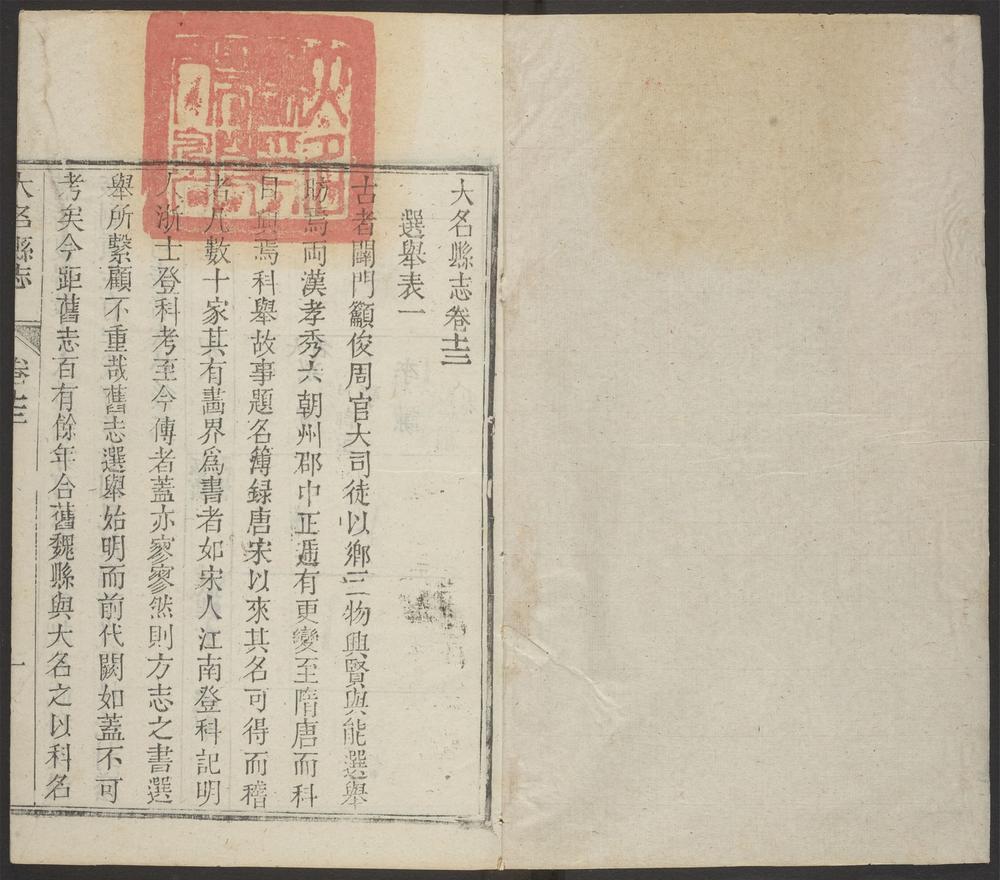 大名縣志卷十二
選舉表一
古者闢門籲俊周官大司徒以鄉三物興賢與能選舉
昉焉両漢孝秀六朝州郡中正遞有更變至隋唐而科
目興焉科舉故事題名簿録唐宋以來其名可得而稽
者凡數十家其有畫界爲書者如宋人江南登科記明
人浙士登科考至今傳者蓋亦寥寥然則方志之書選
舉所繫顧不重哉舊志選舉始明而前代闕如蓋不可
考矣今距舊志百有餘年合舊魏縣與大名之以科名
大名縣志 卷十二 一